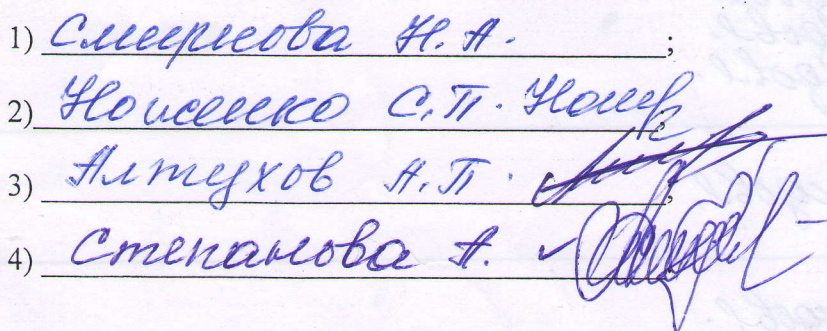 1) Смирнова Н.А. ;
2) С.П.
3) Алтухов А.П. ;
4) Степанова А.